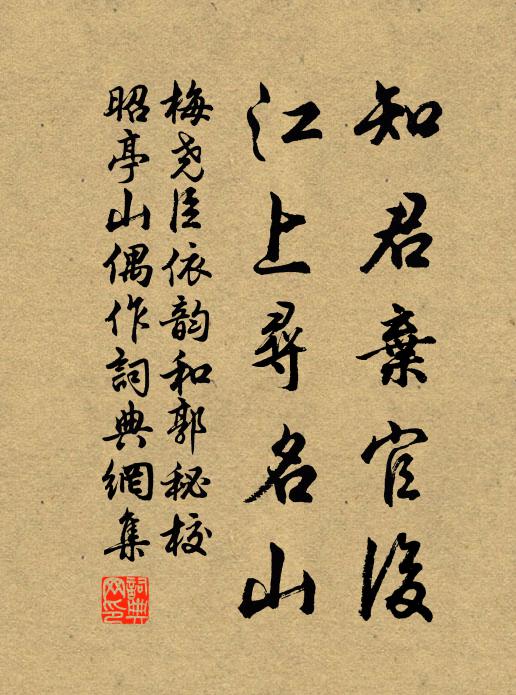 知君棄官後
江上尋名山
梅堯臣依韵和郭秘校
昭亭山偶作詞典網集
詞典网印